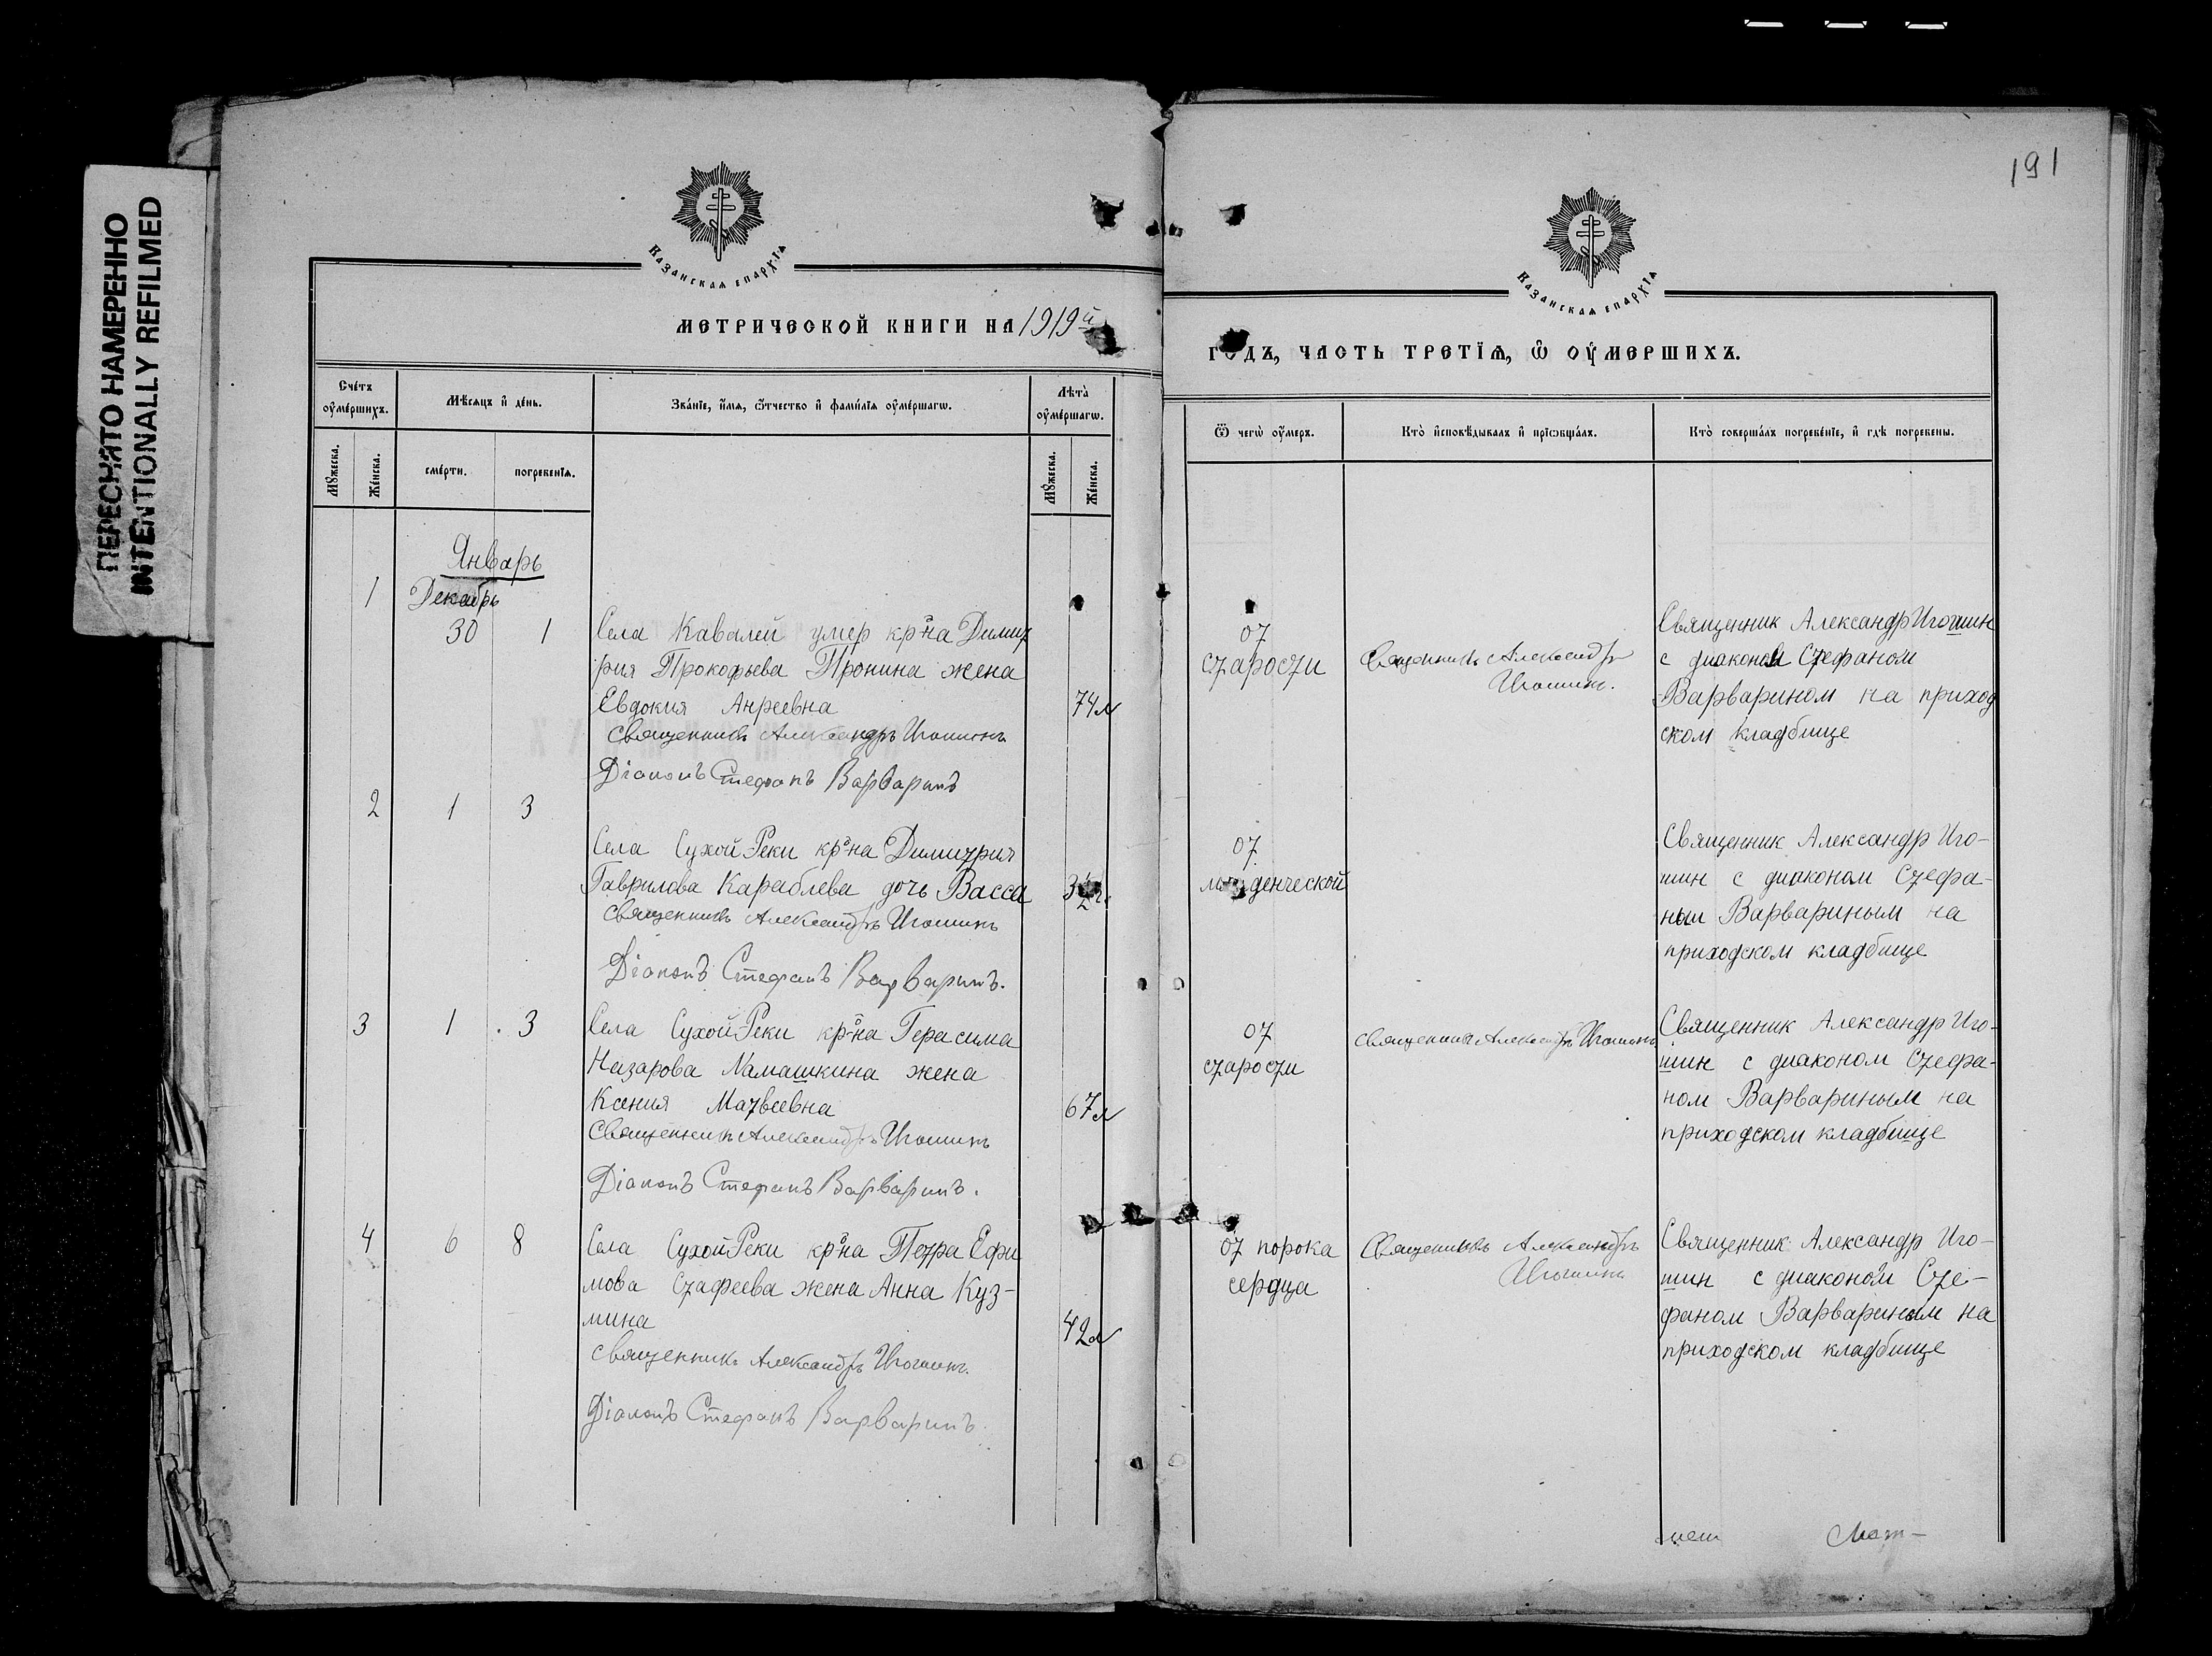 ПЕРЕСНЯТО НАМЕРЕННО
INTENTIONALLY REFILMED
191
Казанская епархїѧ
Казанская епархїѧ
МЕТРИЧЕСКОЙ КНИГИ НА 1919й
ГОДЪ, ЧАСТЬ ТРЕТЇѦ, Ѿ ОУМЕРШИХЪ.
Счетъ оумершихъ.
Мѣсяцъ и день.
Званїе, имѧ, отчество и фамилїѧ оумершагѡ.
Лѣта оумершагѡ.
Ѿ чегѡ оумеръ.
Кто исповѣдывалъ и прїѡбщалъ.
Кто совершалъ погребенїе, и гдѣ погребены.
Мꙋжеска.
Женска.
смерти.
погребенїѧ.
Мꙋжеска.
Женска.
Январь
1 Декабрь
30 1
Села Кавалей умер кр-на Димит
рия Прокофьева Пронина жена
Евдокия Анреевна 74 л
Священникъ Александръ Игошинъ
Дiаконъ Стефанъ Варваринъ
от
старости
Священникъ Александръ
Игошинъ.
Священник Александр Игошин
с диаконом Стефаном
Варварином на приход
ском кладбище
2 1 3
Села Сухой Реки кр-на Димитрия
Гаврилова Караблева дочь Васса
Священникъ Александръ Игошинъ
Дiаконъ Стефанъ Варваринъ.
от
младенческой
Священник Александр Иго-
шин с диаконом Стефа-
ным Варвариным на
приходском кладбище
3 1 3
Села Сухой Реки кр-на Герасима
Назарова Мамашкина жена
Ксения Матвеевна 67 л
Священникъ Александръ Игошинъ
Дiаконъ Стефанъ Варваринъ.
от
старости
Священникъ Александръ Игошинъ
Священник Александр Иго-
шин с диаконом Стефа-
ном Варвариным на
приходском кладбище
4 6 8
Села Сухой Реки кр-на Петра Ефи
мова Стафеева жена Анна Куз-
мина 42 л
Священникъ Александръ Игошинъ.
Дiаконъ Стефанъ Варваринъ.
от порока
сердца
Священникъ Александръ
Игошинъ
Священник Александр Иго-
шин с диаконом Сте-
фаном Варвариным на
приходском кладбище